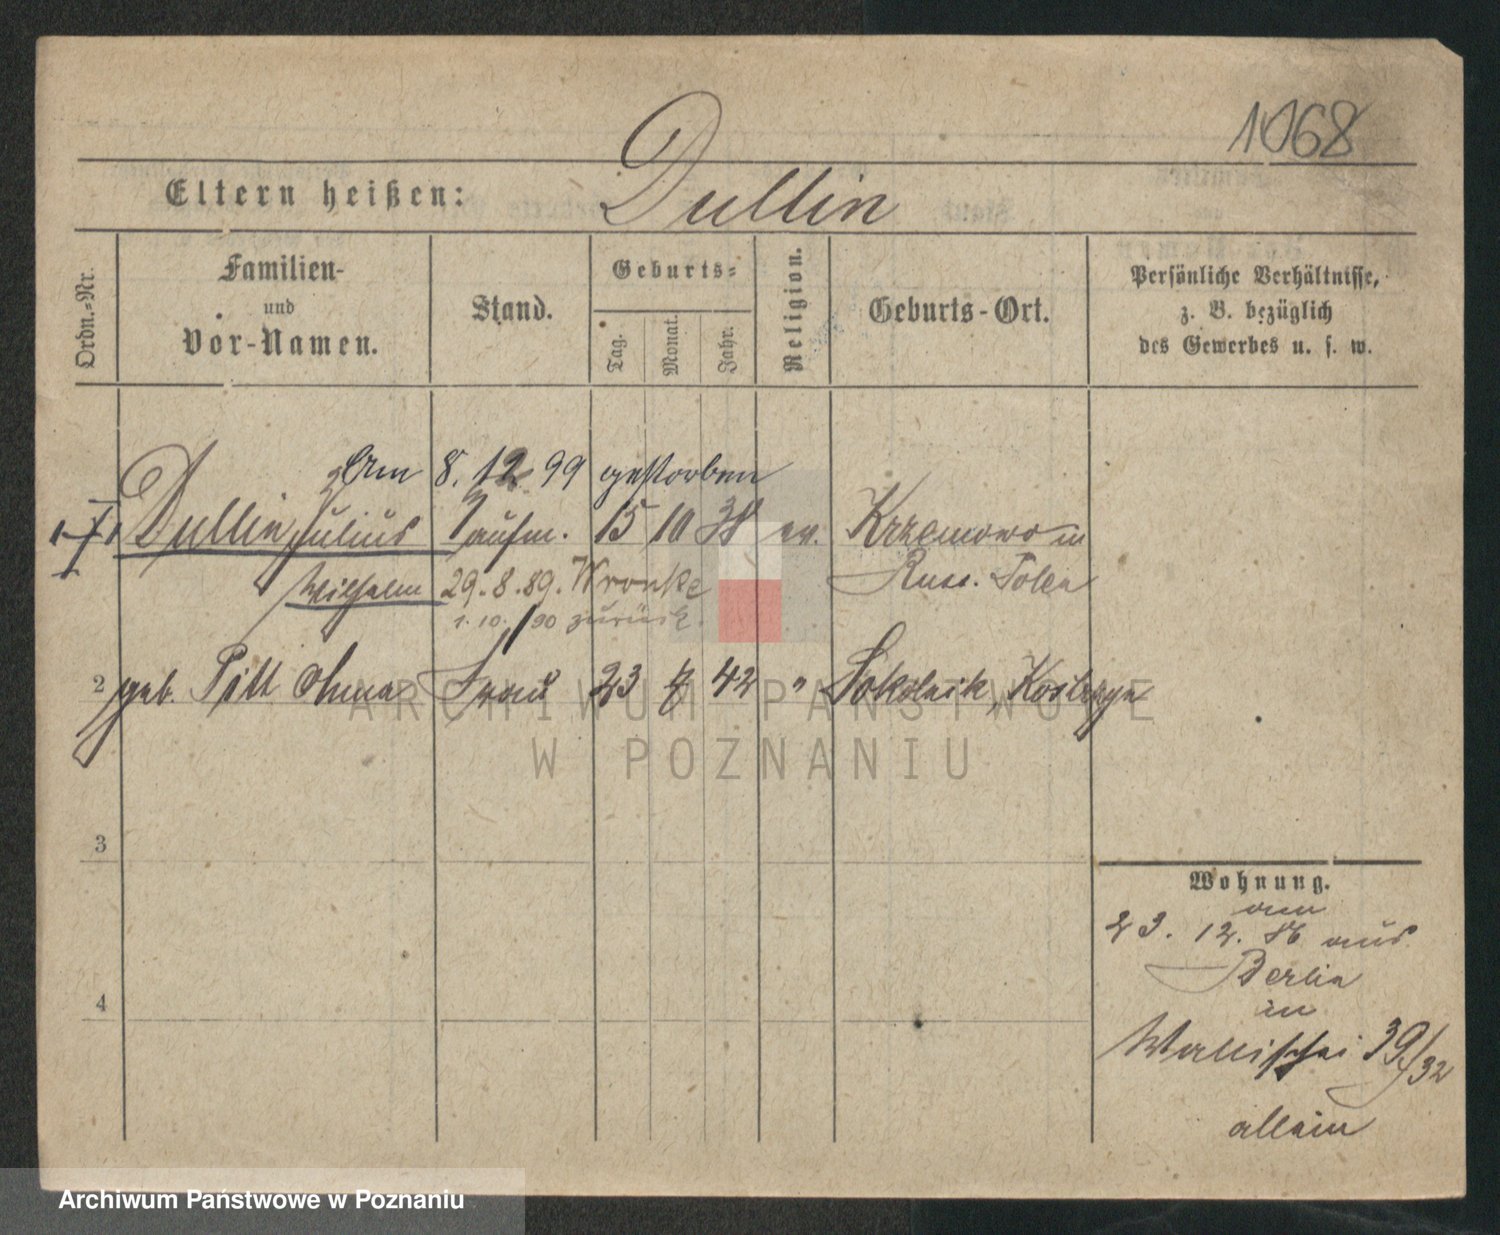 1068
Eltern heißen: Dullin
Ordn.-Nr.
Familien-
und
Vor-Namen.
Stand.
Geburts-
Tag.
Monat.
Jahr.
Religion.
Geburts-Ort.
Persönliche Verhältnisse,
z. B. bezüglich
des Gewerbes u. s. w.
Am 8. 12 99 gestorben
1 Dullin Julius Kaufm. 15 10 38 ev. Krzemowo in
Wilhelm 29.8.89. Wronke Russ. Polen
1.10./90 zurück.
2 geb. Pitt Frau 23 7 42 " Sokolnik, Kostrzyn
ARCHIWUM PAŃSTWOWE
W POZNANIU
3
Wohnung.
am
23. 12. 86 aus
Berlin
in
4
Wallischei 39/32
allein
Archiwum Państwowe w Poznaniu